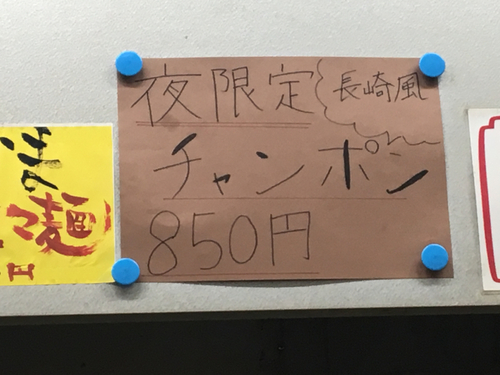 夜限定
長崎風
チャンポン
850円
麺